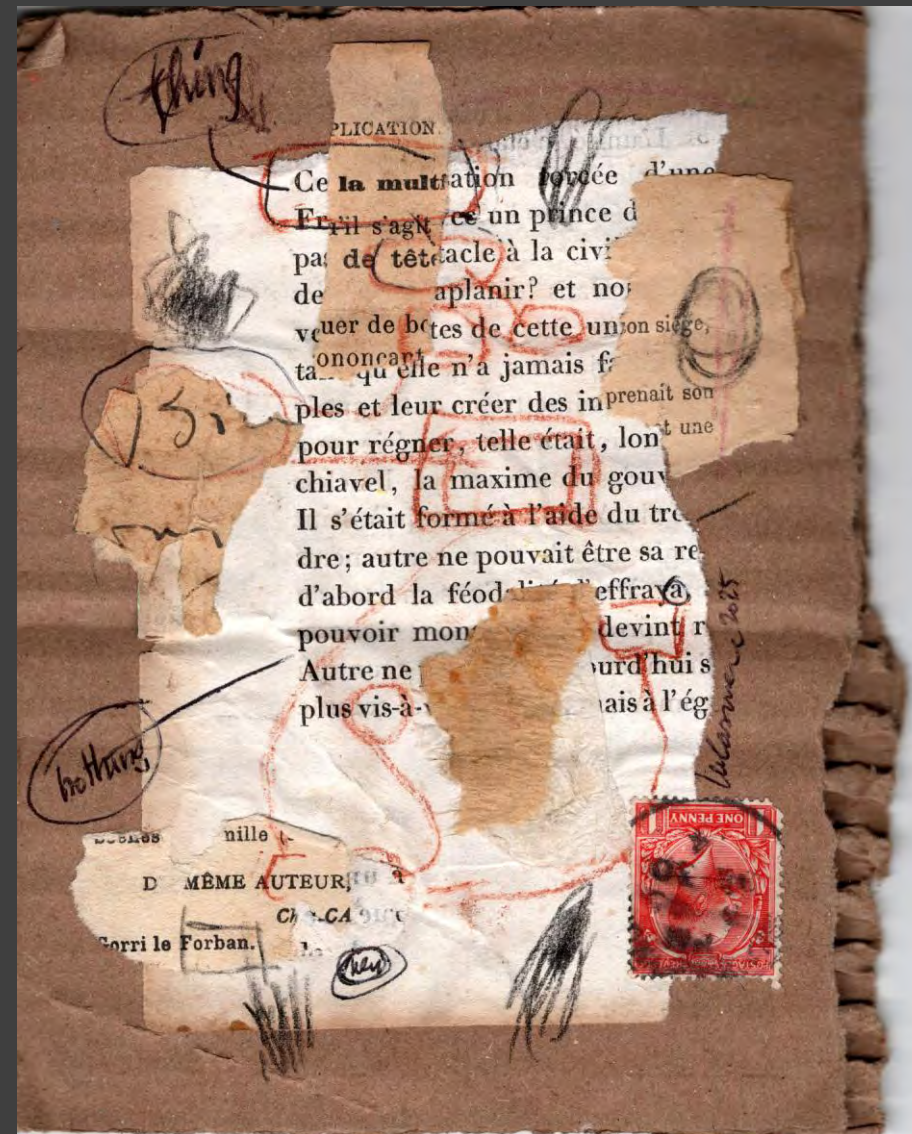 thing
PLICATION
Ce la multsation forcée d'une
Fr il s'agit ce un prince d
pas de têtetacle à la civi
de aplanir? et no
veuer de botes de cette union siège,
ta ononçant qu'elle n'a jamais f
ples et leur créer des in prenait son
pour régner, telle était, lon t une
chiavel, la maxime du gouv
Il s'était formé à l'aide du trô
dre; autre ne pouvait être sa re
d'abord la féod effraya,
pouvoir mon devint r
Autre ne urd'hui s
plus vis-à-v ais à l'ég
Si
nothing
2025
nille
D MÊME AUTEUR,
Ch .CA
Gorri le Forban.
new
ONE PENNY